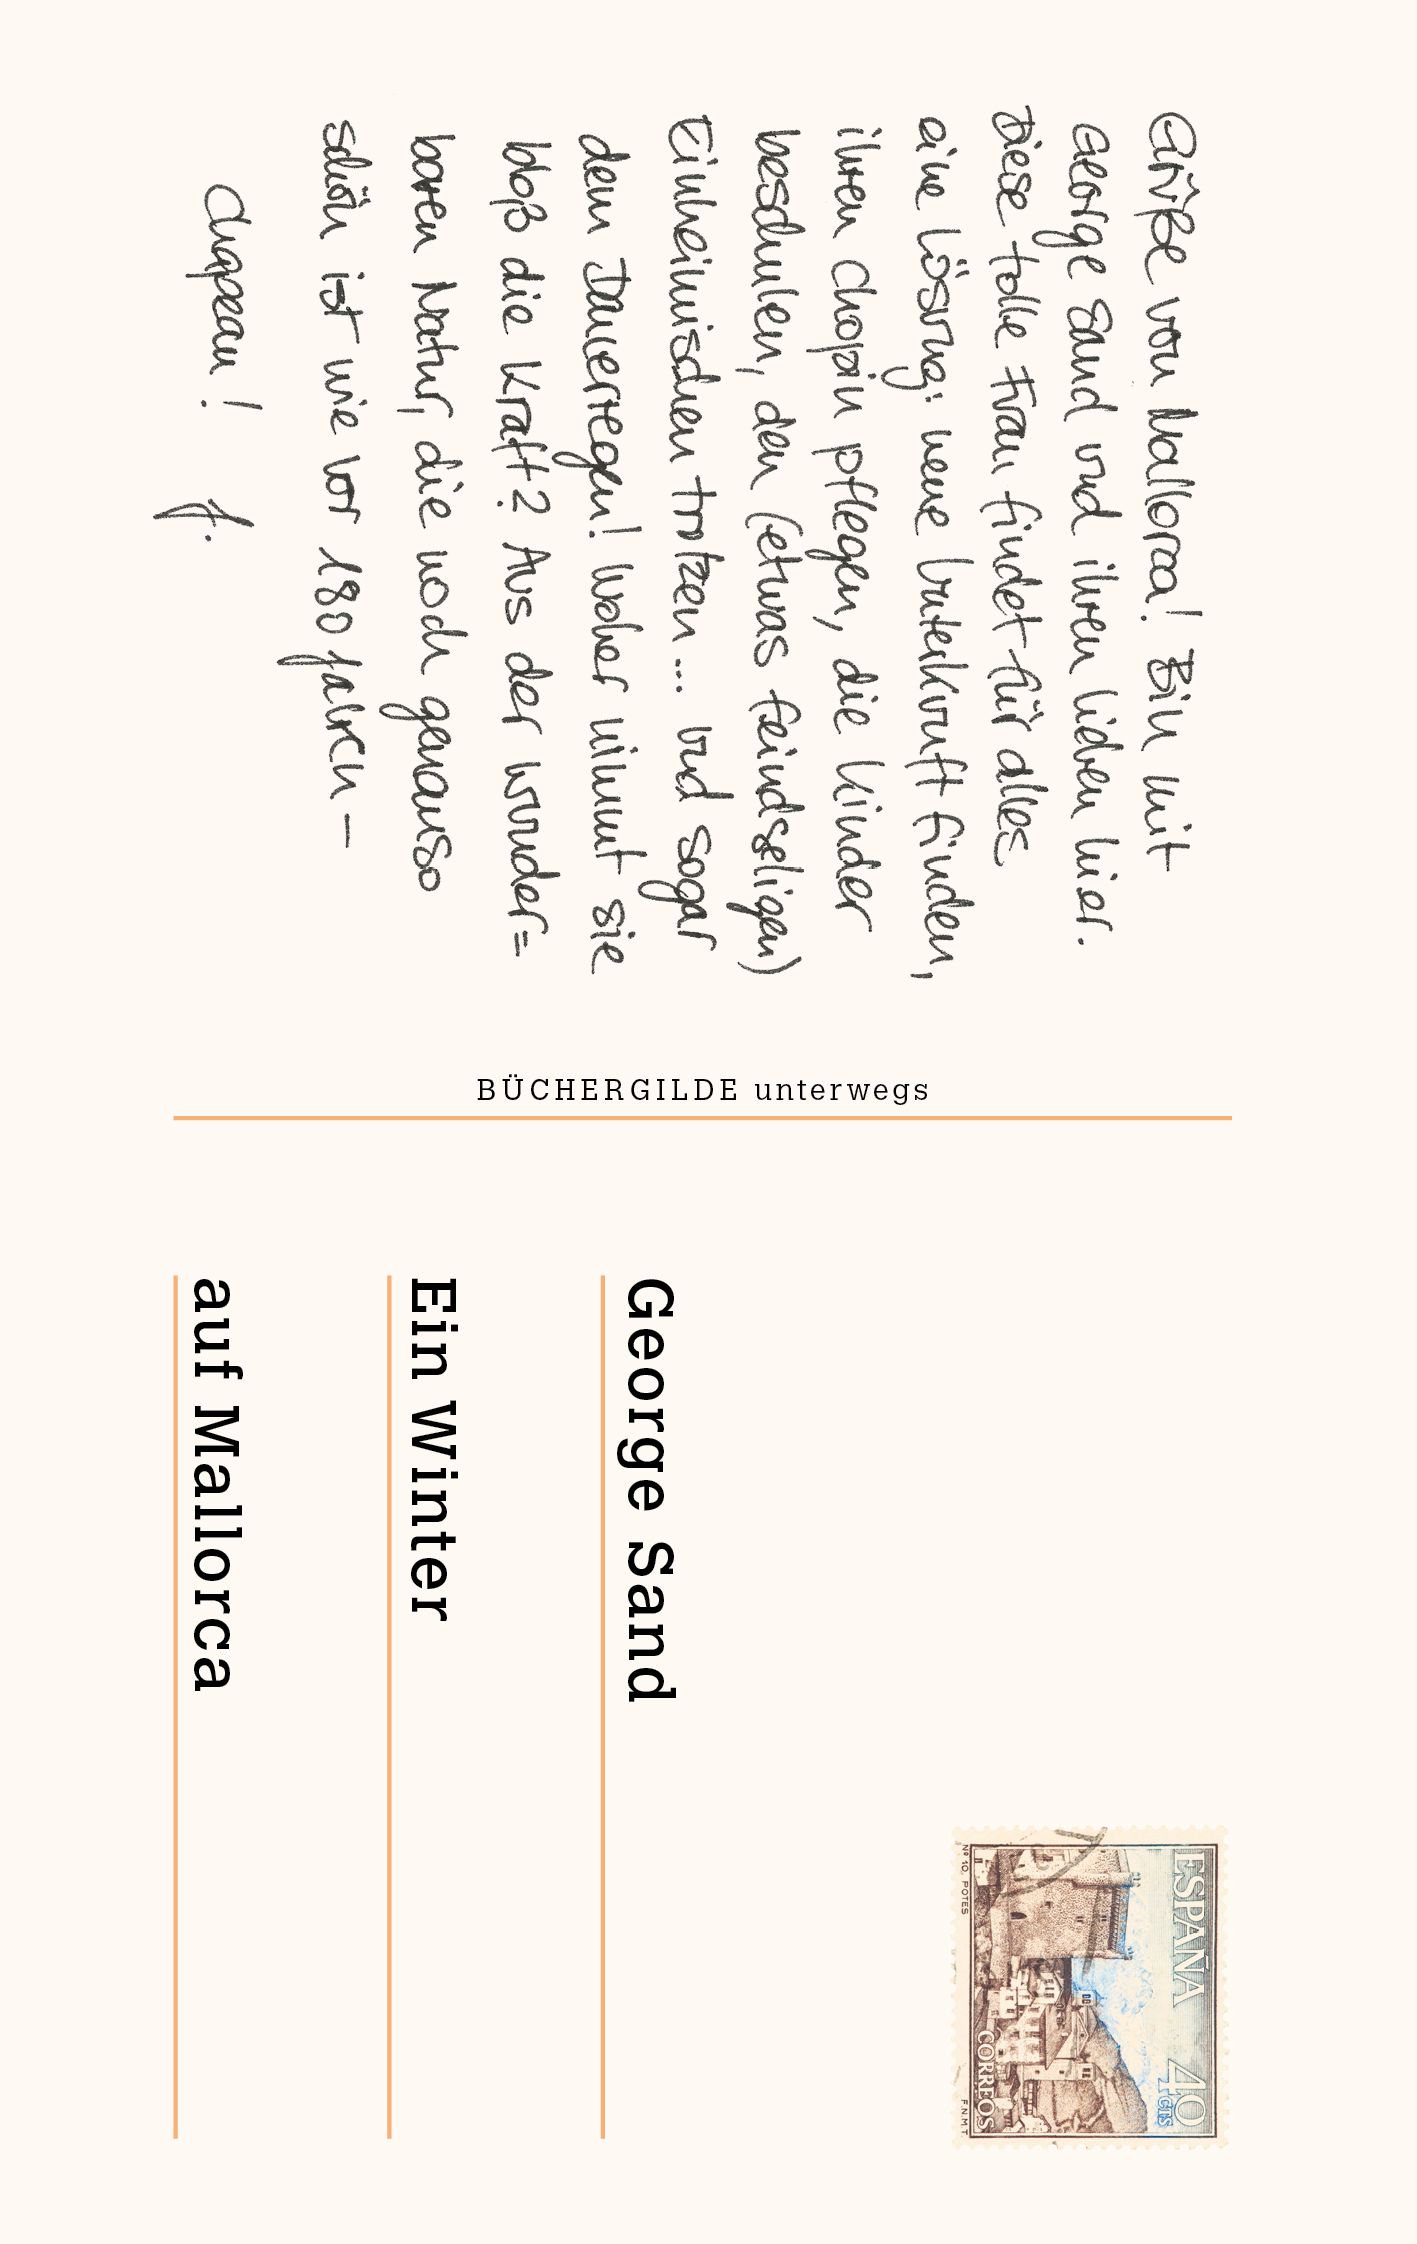 Grüße von Mallorca! Bin mit
George Sand und ihren lieben hier.
Diese tolle Frau findet für alles
eine Lösung: neue Unterkunft finden,
ihren Chopin pflegen, die Kinder
beschulen, den (etwas feindseligen)
Einheimischen trotzen... und sogar
dem Dauerregen! Woher nimmt sie
bloß die Kraft? Aus der wunder=
baren Natur, die noch genauso
schön ist wie vor 180 Jahren –
Chapeau! J.
BÜCHERGILDE unterwegs
George Sand
Ein Winter
auf Mallorca
ESPAÑA 40
CTS
CORREOS
Nº 10. POTES
F.N.M.T